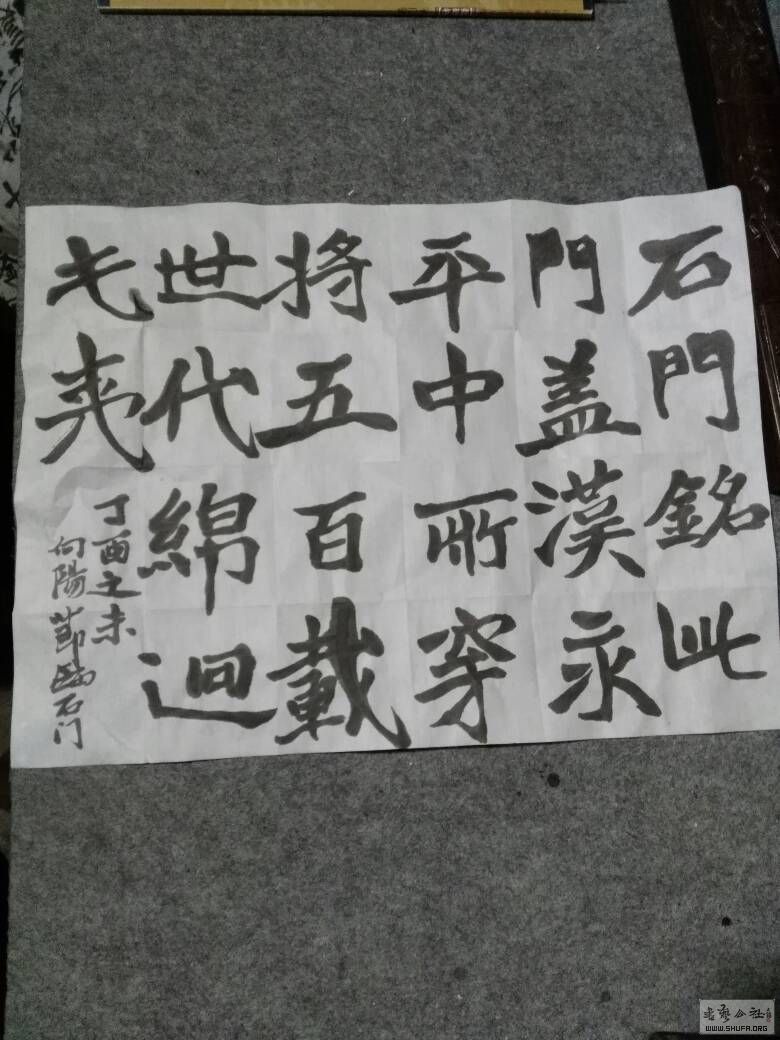 石門銘此
門盖漢永
平中所穿
将五百載
世代綿迴
屯夷
丁酉之末
向陽節临石门
书艺公社
WWW.SHUFA.ORG